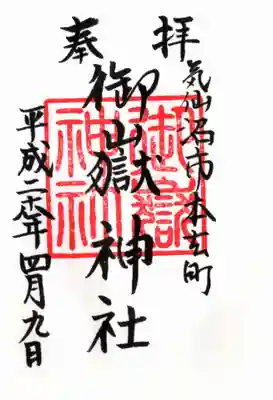 奉拝
気仙沼市本吉町
御嶽神社
平成二十八年四月九日
御嶽
神社